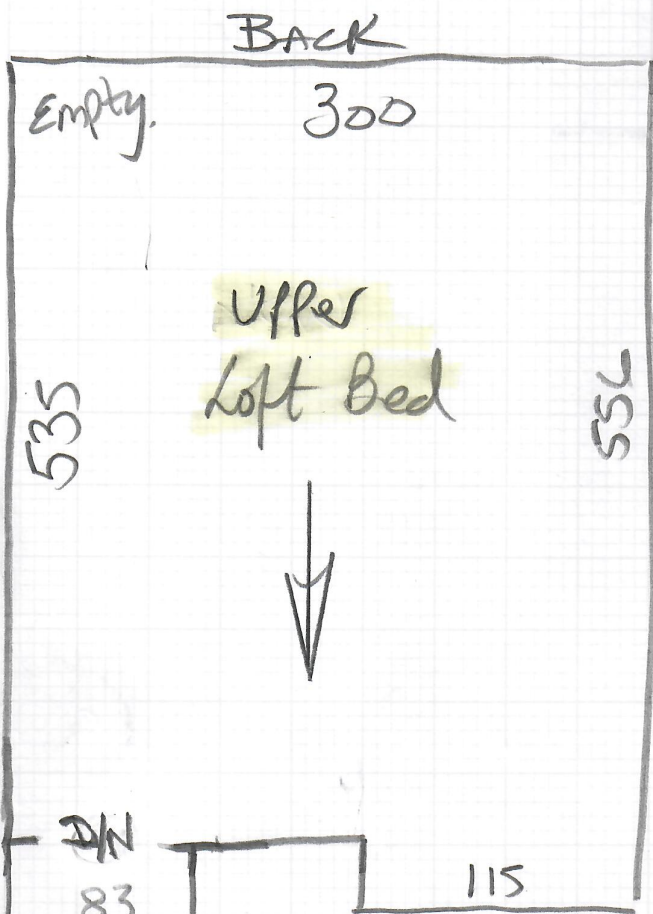 BACK
Empty. 300
Upper
Loft Bed
535
D/N
83
115